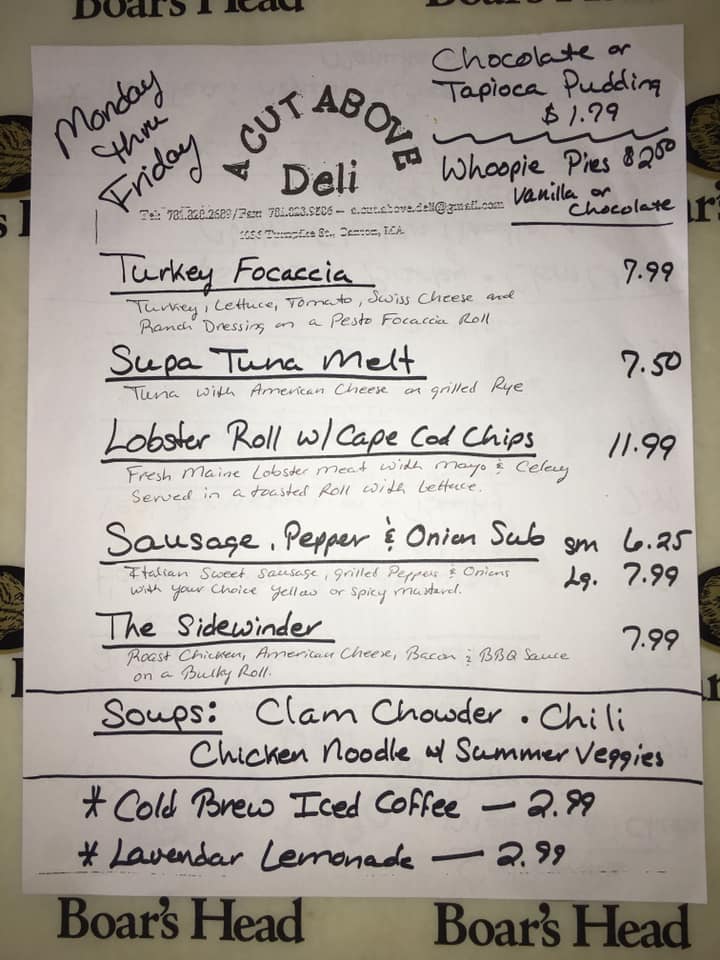 Boar's Head
Boar's Head
Monday
thru
Friday
A CUT ABOVE
Deli
Chocolate or
Tapioca Pudding
$1.79
Whoopie Pies $2.00
Vanilla or
Chocolate
Turkey Focaccia 7.99
Turkey, Lettuce, Tomato, Swiss Cheese and
Ranch Dressing on a Pesto Focaccia Roll
Supa Tuna Melt 7.50
Tuna with American Cheese on grilled Rye
Lobster Roll w/Cape Cod Chips 11.99
Fresh Maine Lobster meat with mayo & Celery
Served in a toasted Roll with Lettuce.
Sausage, Pepper & Onion Sub sm 6.25
Lg. 7.99
Italian Sweet Sausage, grilled Peppers & Onions
with your choice yellow or spicy mustard.
The Sidewinder 7.99
Roast Chicken, American Cheese, Bacon & BBQ Sauce
on a Bulky Roll.
Soups: Clam Chowder • Chili
Chicken Noodle w/ Summer Veggies
* Cold Brew Iced Coffee — 2.99
* Lavendar Lemonade — 2.99
Boar's Head
Boar's Head